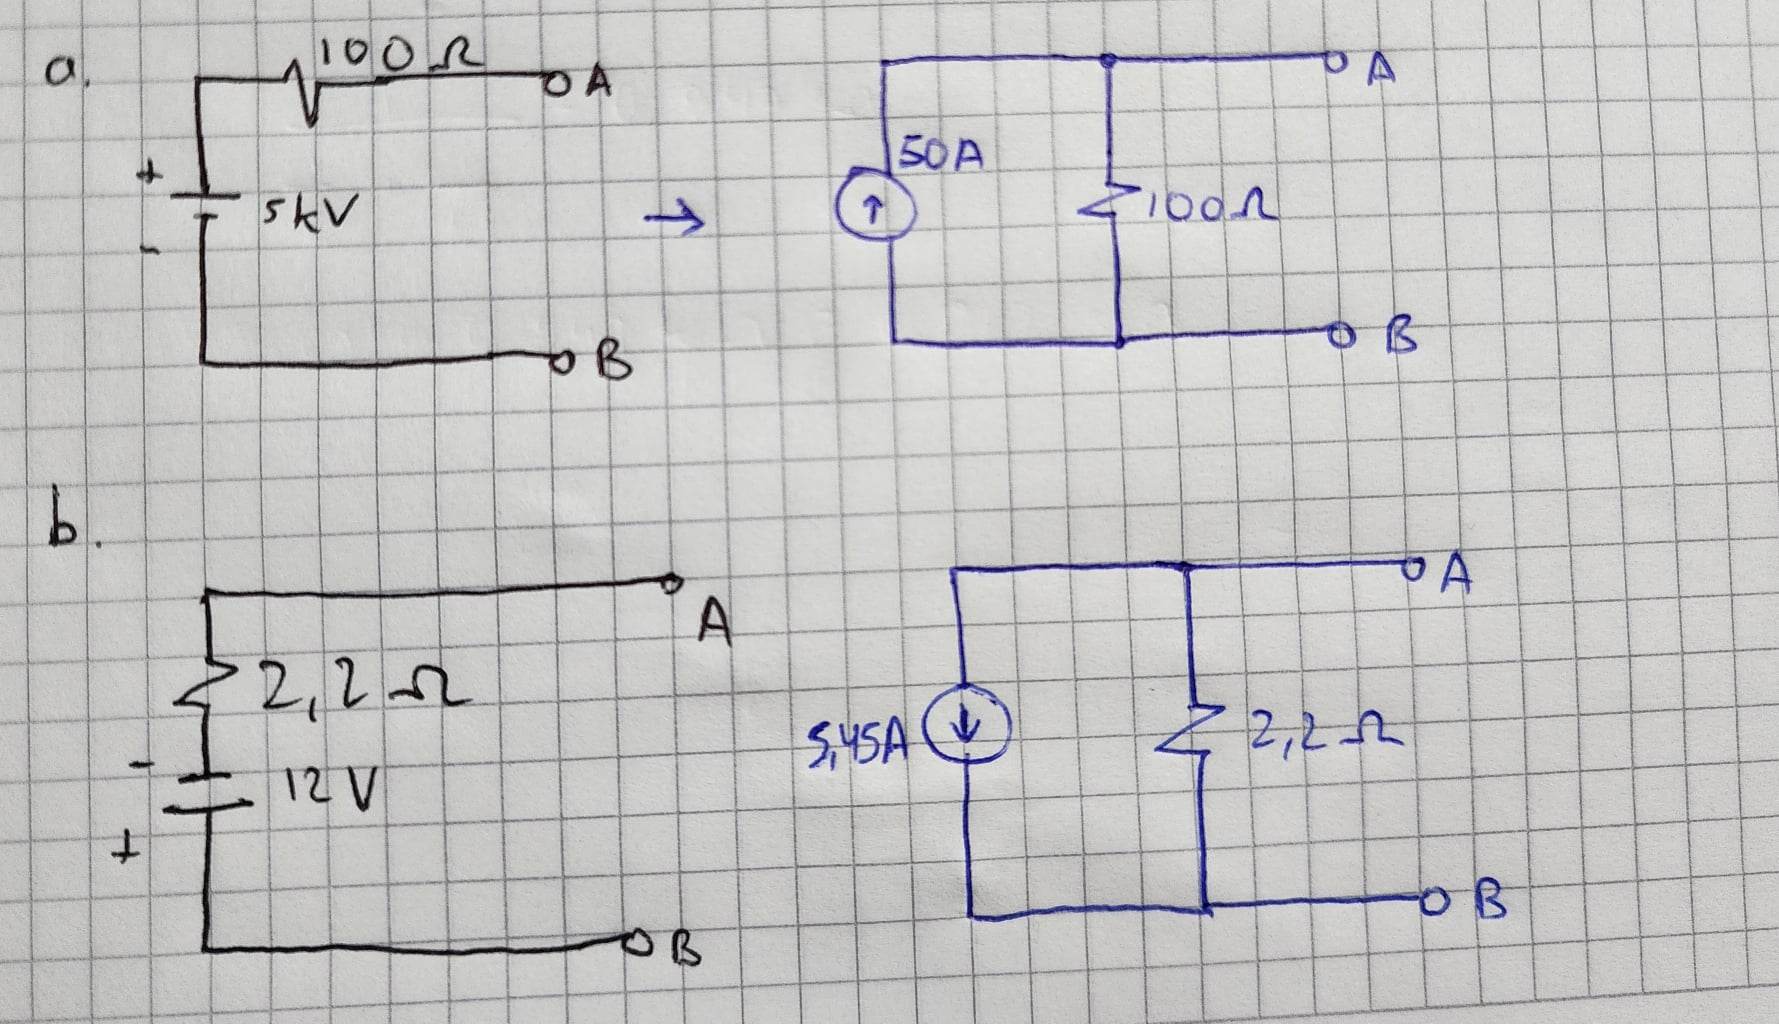 a.
100Ω
A
+
5kV
-
B
→
50A
↑
100Ω
A
B
b.
A
2,2Ω
-
12V
+
B
5,45A
↓
2,2Ω
A
B